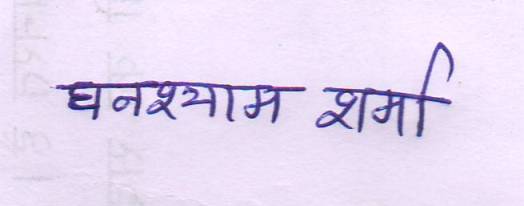 घनश्याम शर्मा